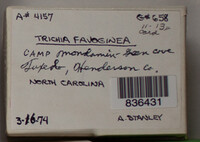 A# 4157 G# 658
TRICHIA FAVOGINEA
CAMP Mondamin - Green Cove
Tuxedo, Henderson Co.
NORTH CAROLINA
836431
3-26-74 A. STANLEY